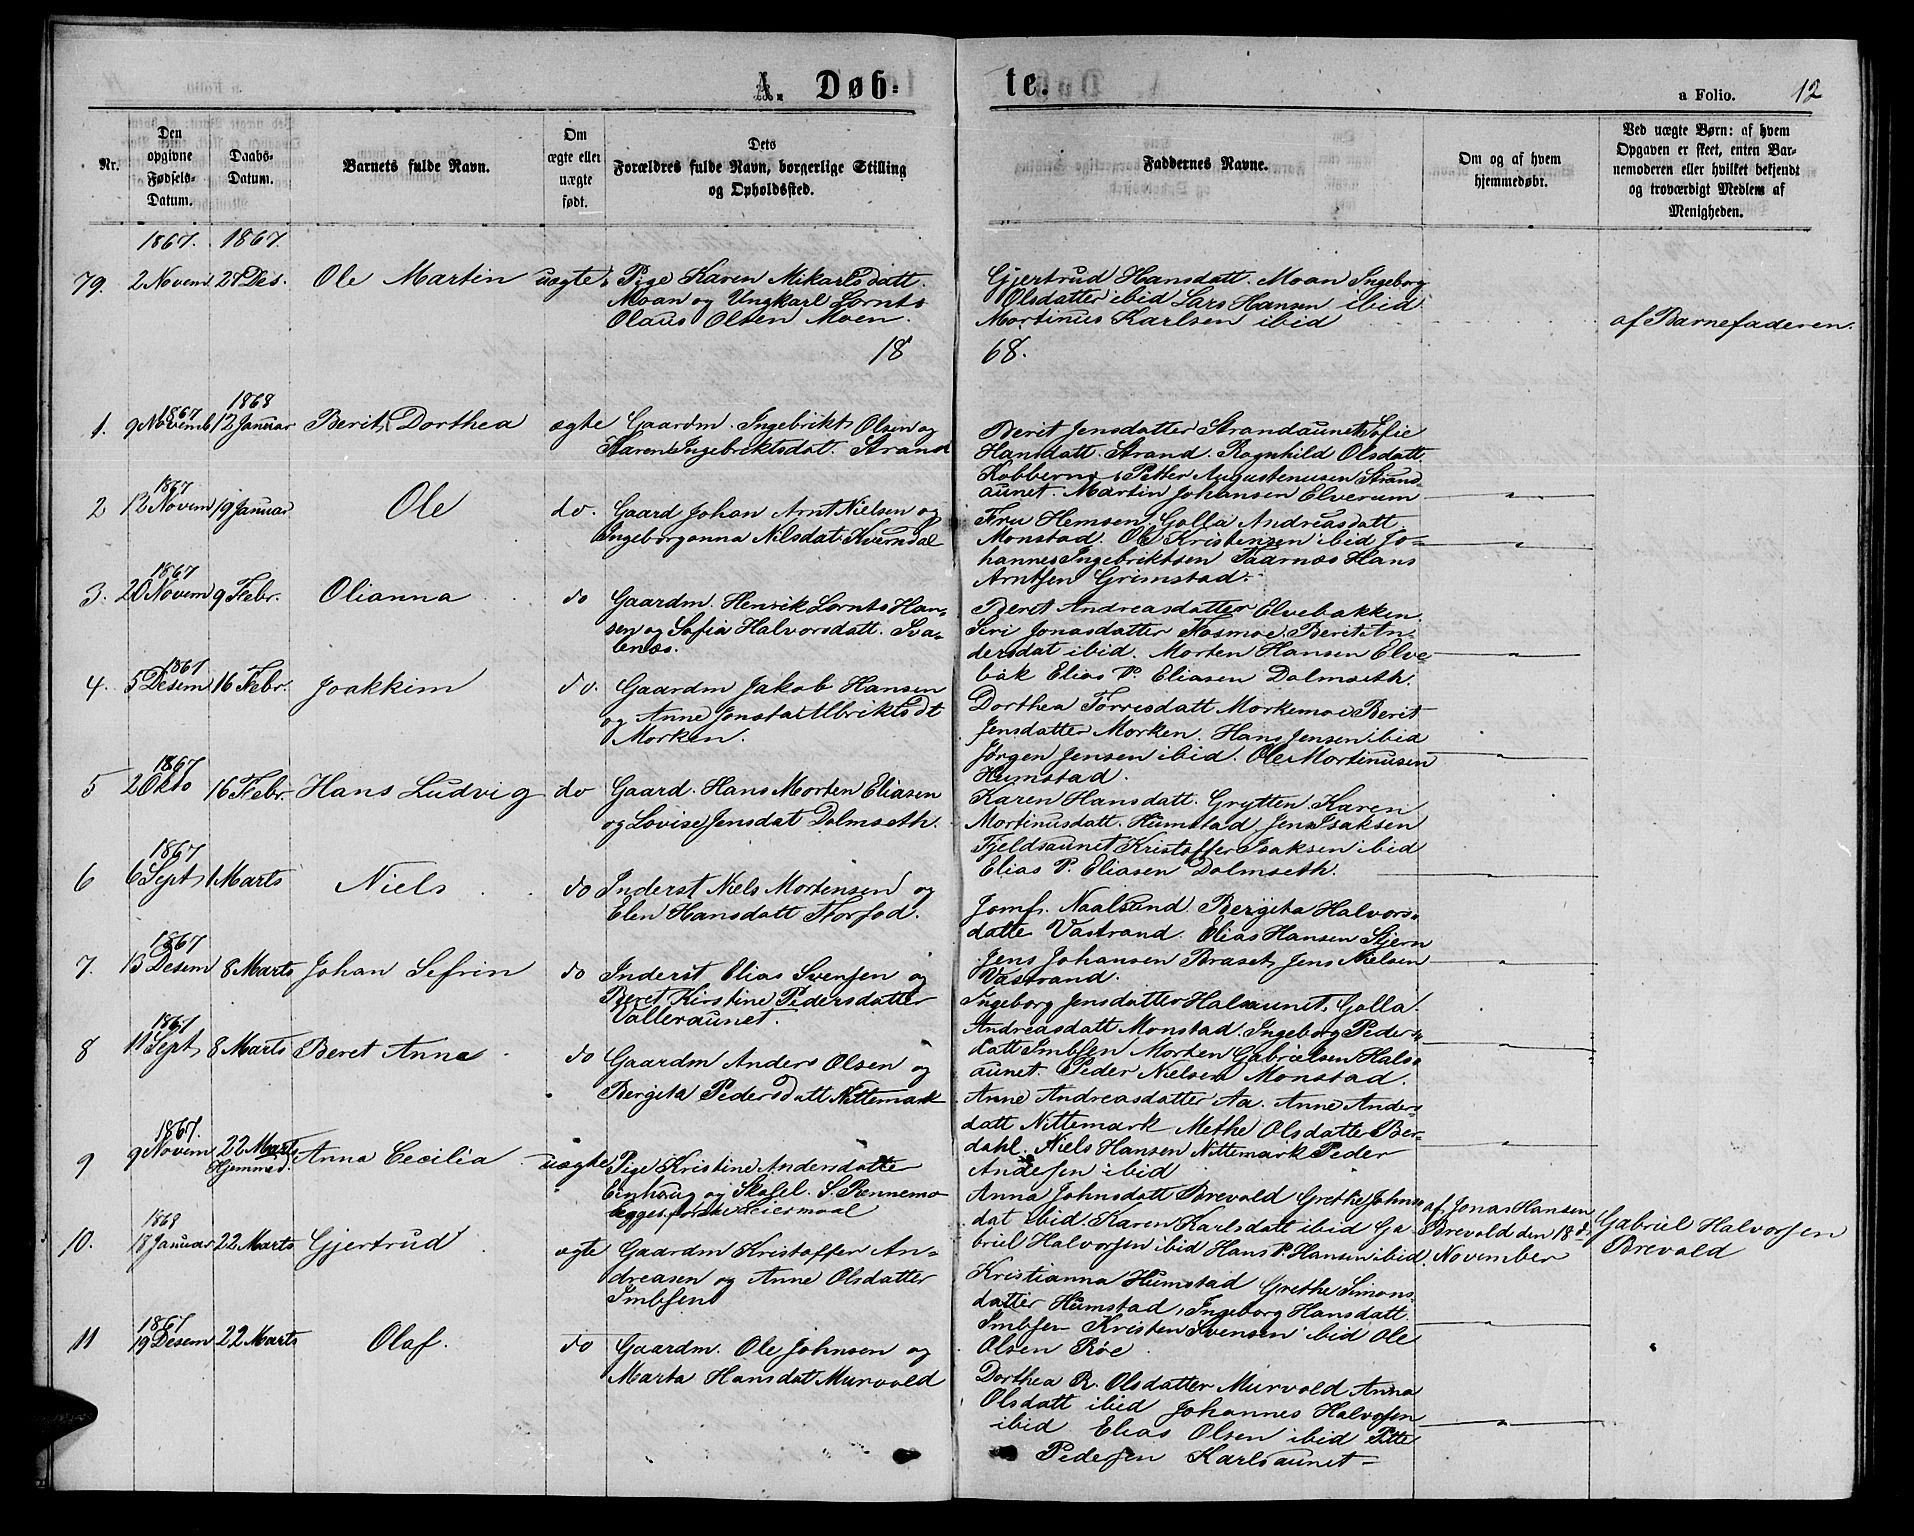 A. Døb-
te.
a Folio. 12
Nr.
Den opgivne Fødsels-Datum.
Daabs-Datum.
Barnets fulde Navn.
Om ægte eller uægte født.
Dets Forældres fulde Navn, borgerlige Stilling og Opholdssted.
Faddernes Navne.
Om og af hvem hjemmedøbt.
Ved uægte Børn: af hvem Opgaven er skeet, enten Barnemoderen eller hvilket bekjendt og troværdigt Medlem af Menigheden.
1867. 1867.
79. 2 Novem 27 Des. Ole Martin uægte Pige Karen Mikarlsdatt.
Moan og Ungkarl Lornts
Olaus Olsen Moen.
Gjertrud Hansdatt. Moan Ingeborg
Olsdatter ibid Lars Hansen ibid
Martinus Karlsen ibid
af Barnefaderen.
18 68.
1867 1868
1. 9 Novemb 12 Januar Berit Dorthea ægte Gaardm. Ingebrikt Olsen og
Karen Ingebriktsdat. Strand
Berit Jensdatter Strandaunet Sofie
Hansdatt. Strand. Ragnhild Olsdatt
Petter Augustenusen Strand-
aunet. Martin Johansen Elverum
1867
2 12 Novem 19 Januar Ole do. Gaard Johan Arnt Nielsen og
Ingeboranna Nilsdat Kverndal
Fru Hemsen. Golla Andreasdatt.
Monstad. Ole Kristensen ibid Jo-
hannes Ingebriktsen Taarnæs Hans
Arntsen Grimstad.
1867
3. 20 Novem 9 Febr. Olianna do Gaardm. Henrik Lornts Han-
sen og Sofia Halvorsdatt. Sva-
lenæs.
Beret Andreasdatter Elvebakken.
Siri Jonasdatter Fosmoe. Berit An-
dersdat ibid. Morten Hansen Elve-
bak Elias P. Eliasen Dolmseth.
1867
4. 5 Desem 16 Febr. Joakkim do. Gaardm Jakob Hansen
og Anne
Morken.
Dorthea Torrisdatt Morkemoe Berit
Jensdatter Morken. Hans Jensen ibid
Jørgen Jensen ibid. Ole Martinusen
Humstad.
1867
5 2 Okto 16 Febr. Hans Ludvig do Gaard. Hans Morten Eliasen
og Lovise Jensdat Dolmseth.
Karen Hansdatt. Grytten Karen
Martinusdatt. Humstad Jens Isaksen
Fjeldsaunet Kristoffer Isaksen ibid
Elias P. Eliasen Dolmseth.
1867
6 6 Sept 1 Marts Niels do Inderst Niels Mortensen og
Elen Hansdatt Norfod.
Jomf. Naalsund. Bergita Halvors-
datte Vastrand. Elias Hansen Stjern
Jens Johansen Braset Jens Nielsen
Vastrand.
1867
7. 13 Desem 8 Marts Johan Sefrin do Inderst Elias Svensen og
Beret Kirstine Pedersdatter
Valleraunet.
Ingeborg Jensdatter Halsaunet. Golla
Andreasdatt Monstad. Ingeborg Peders-
datt Imbsen Morten Gabrielsen Hals-
aunet. Peder Nielsen Monstad.
1867
8 11 Sept 8 Marts Beret Anna do Gaardm Anders Olsen og
Bergita Pedersdatt Nittemark
Anne Andreasdatter Aa. Anne Anders-
datt Nittemark Methe Olsdatter Ber-
dahl. Niels Hansen Nittemark Peder
Andersen ibid
1867.
9 9 Novem 22 Marts Anna Cecilia uægte Pige Kristine Andersdatter
Hjemmed.
Einhaug og Skafel. S. Rennemo
begges første Leiermaal
Anna Johnsdatt Brevold Grethe Johns-
dat ibid. Karen Karlsdatt ibid Ga-
briel Halvorsen ibid Hans P. Hansen ibid
af Jonas Hansen
Brevold den 18de
November
Gabriel Halvorsen
Brevold
1868
10. 18 Januar 22 Marts Gjertrud ægte Gaardm Kristoffer An-
dreasen og Anne Olsdatter
Imbsen
Kristianna Humstad Grethe Simons-
datter Humstad, Ingeborg Hansdatt.
Imbsen Kristen Svensen ibid Ole
Olsen Röe.
1867
11 19 Desem 22 Marts Olaf. do Gaardm. Ole Johnsen og
Marta Hansdat Murvold
Dorthea R. Olsdatter Murvold Anna
Olsdatt ibid Johannes Halvorsen
ibid Elias Olsen ibid Pette
Pedersen Karlsaunet